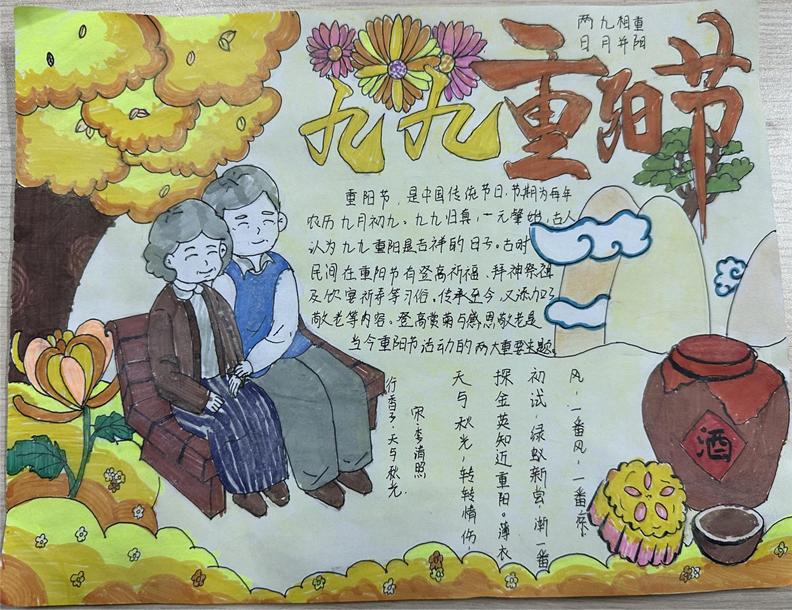 两九相重
日月并阳
九九重阳节
重阳节，是中国传统节日,节期为每年
农历九月初九。九九归真，一元肇始，古人
认为九九重阳是吉祥的日子。古时
民间在重阳节有登高祈福、拜神祭祖
及饮宴祈寿等习俗，传承至今，又添加了
敬老等内容，登高赏菊与感恩敬老是
当今重阳节活动的两大重要主题。
行香子·天与秋光
宋·李清照
天与秋光，转转情伤，
探金英知近重阳。薄衣
初试，绿蚁新尝，渐一番
风，一番风，一番凉
酒